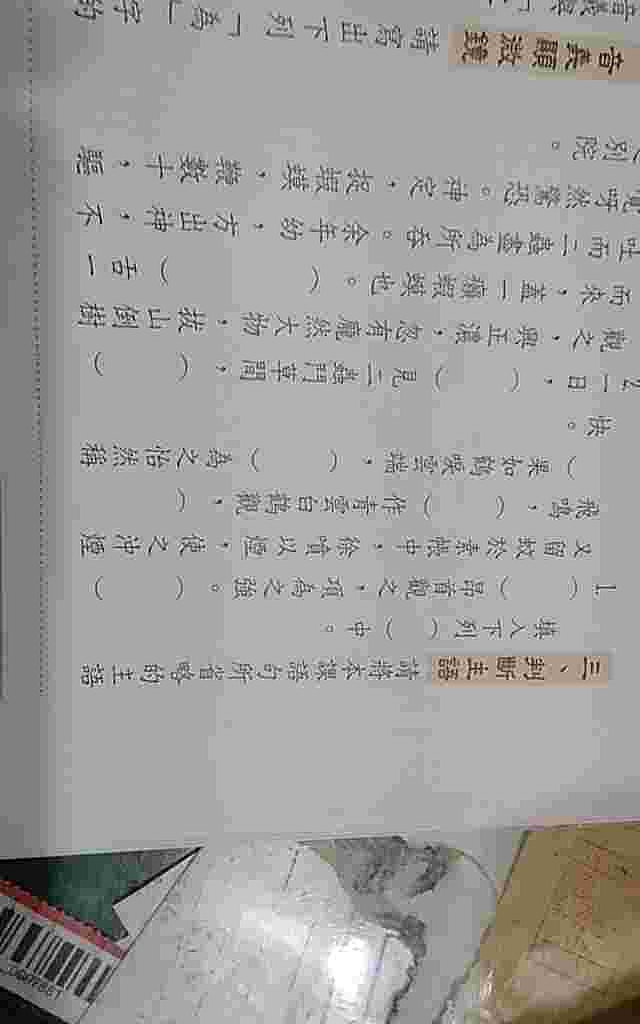 三、判斷主語 請將本課語句所省略的主語
填入下列（ ）中。
1（ ）昂首觀之，項為之強。（ ）
又留蚊於素帳中，徐噴以煙，使之沖煙
飛鳴，（ ）作青雲白鶴觀，（
）果如鶴唳雲端，（ ）為之怡然稱
快。
2一日，（ ）見二蟲鬥草間，（ ）
觀之，興正濃，忽有龐然大物，拔山倒樹
而來，蓋一癩蝦蟆也。（ ）舌一
吐而二蟲盡為所吞。余年幼，方出神，不
覺呀然驚恐。神定，捉蝦蟆，鞭數十，驅
之別院。
音義顯微鏡 請寫出下列「為」字的
音義與